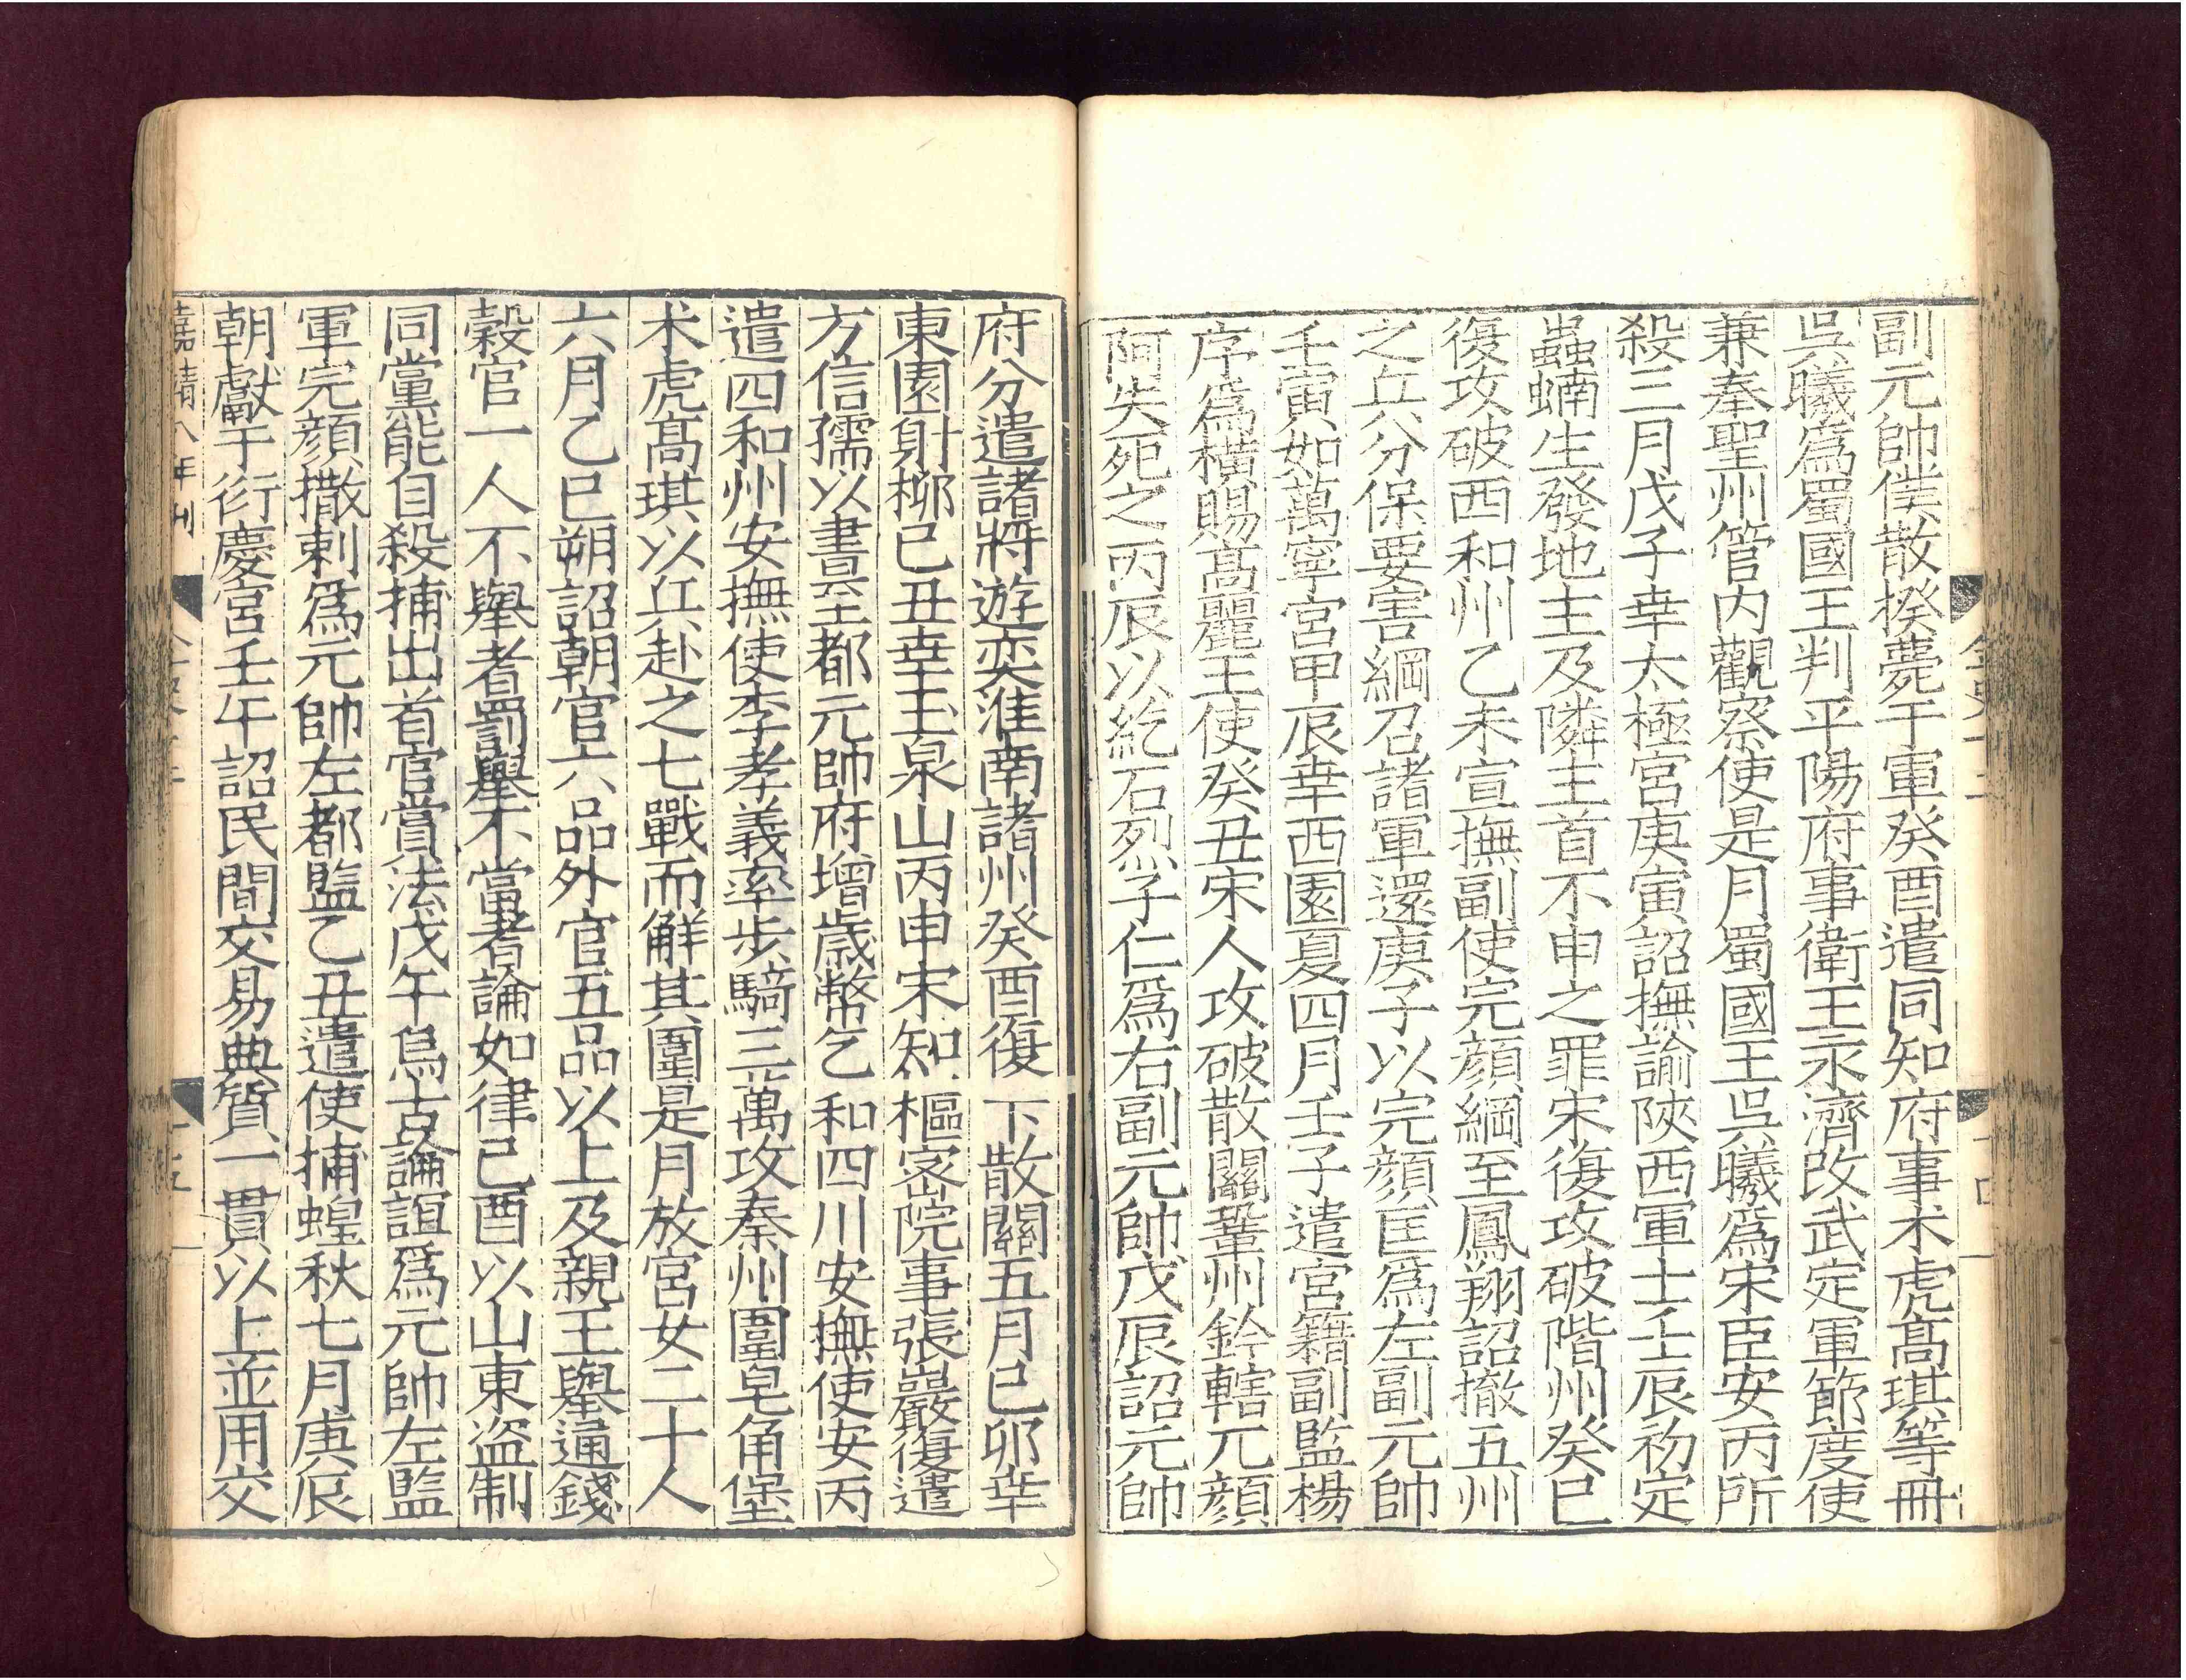 副元帥僕散揆薨于軍癸酉遣同知府事术虎髙琪等冊
吳曦爲蜀國王判平陽府事衛王永濟改武定軍節度使
兼奉聖州管内觀察使是月蜀國王吳曦爲宋臣安丙所
殺三月戊子幸太極宮庚寅詔撫諭陝西軍士壬辰初定
蟲蝻生發地主及隣主首不申之罪宋復攻破階州癸巳
復攻破西和州乙未宣撫副使完顔綱至鳳翔詔撤五州
之兵分保要害綱召諸軍還庚子以完顔匡爲左副元帥
壬寅如萬寧宮甲辰幸西園夏四月壬子遣宮籍副監楊
序爲橫賜髙麗王使癸丑宋人攻破散關鞏州鈐轄兀顔
阿失死之丙辰以紇石烈子仁爲右副元帥戊辰詔元帥
府分遣諸將遊奕淮南諸州癸酉復下散關五月己卯幸
東園射柳己丑幸玉泉山丙申宋知樞密院事張巖復遣
方信孺以書至都元帥府增歲幣乞和四川安撫使安丙
遣四和州安撫使李孝義率步騎三萬攻秦州圍皂角堡
术虎髙琪以兵赴之七戰而解其圍是月放宮女二十人
六月乙巳朔詔朝官六品外官五品以上及親王舉通錢
穀官一人不舉者罰舉不當者論如律己酉以山東盜制
同黨能自殺捕出首官賞法戊午烏古論誼爲元帥左監
軍完顔撒剌爲元帥左都監乙丑遣使捕蝗秋七月庚辰
朝獻于衍慶宮壬午詔民間交易典質一貫以上並用交
嘉靖八年刊